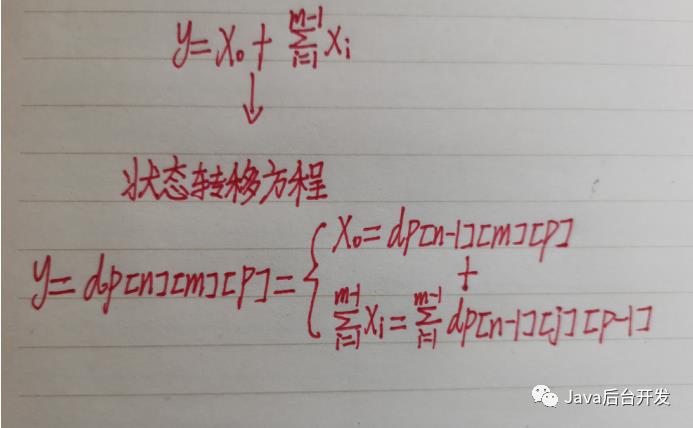 y=X₀+∑_{i=1}^{m-1}Xᵢ
↓
状态转移方程
y=dp[n][m][p]={X₀=dp[n-1][m][p]
+
∑_{i=1}^{m-1}Xᵢ=∑_{i=1}^{m-1}dp[n-1][j][p-1]
Java后台开发